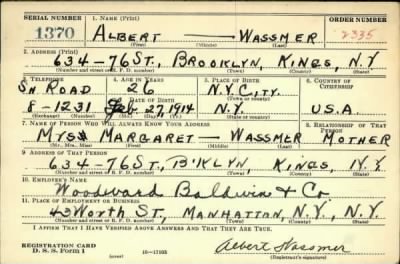 SERIAL NUMBER 1. NAME (Print) ORDER NUMBER
1370 ALBERT — WASSMER 2335
(First) (Middle) (Last)
2. ADDRESS (Print)
634-76 ST., BROOKLYN, KINGS, N.Y.
(Number and street or R. F. D. number) (Town) (County) (State)
3. TELEPHONE 4. AGE IN YEARS 5. PLACE OF BIRTH 6. COUNTRY OF CITIZENSHIP
SH. ROAD 26 N.Y. CITY.
DATE OF BIRTH (Town or county)
8-1231 Feb. 27, 1914 N.Y. U.S.A
(Exchange) (Number) (Mo.) (Day) (Yr.) (State or country)
7. NAME OF PERSON WHO WILL ALWAYS KNOW YOUR ADDRESS 8. RELATIONSHIP OF THAT PERSON
MRSS MARGARET — WASSMER MOTHER
(Mr., Mrs., Miss) (First) (Middle) (Last)
9. ADDRESS OF THAT PERSON
634-76 ST., B'KLYN, KINGS, N.Y.
(Number and street or R. F. D. number) (Town) (County) (State)
10. EMPLOYER'S NAME
Woodward Baldwin & Co
11. PLACE OF EMPLOYMENT OR BUSINESS
43 WORTH ST., MANHATTAN, N.Y., N.Y.
(Number and street or R. F. D. number) (Town) (County) (State)
I AFFIRM THAT I HAVE VERIFIED ABOVE ANSWERS AND THAT THEY ARE TRUE.
REGISTRATION CARD
D. S. S. Form 1 16—17105 Albert Wassmer
(Registrant's signature)